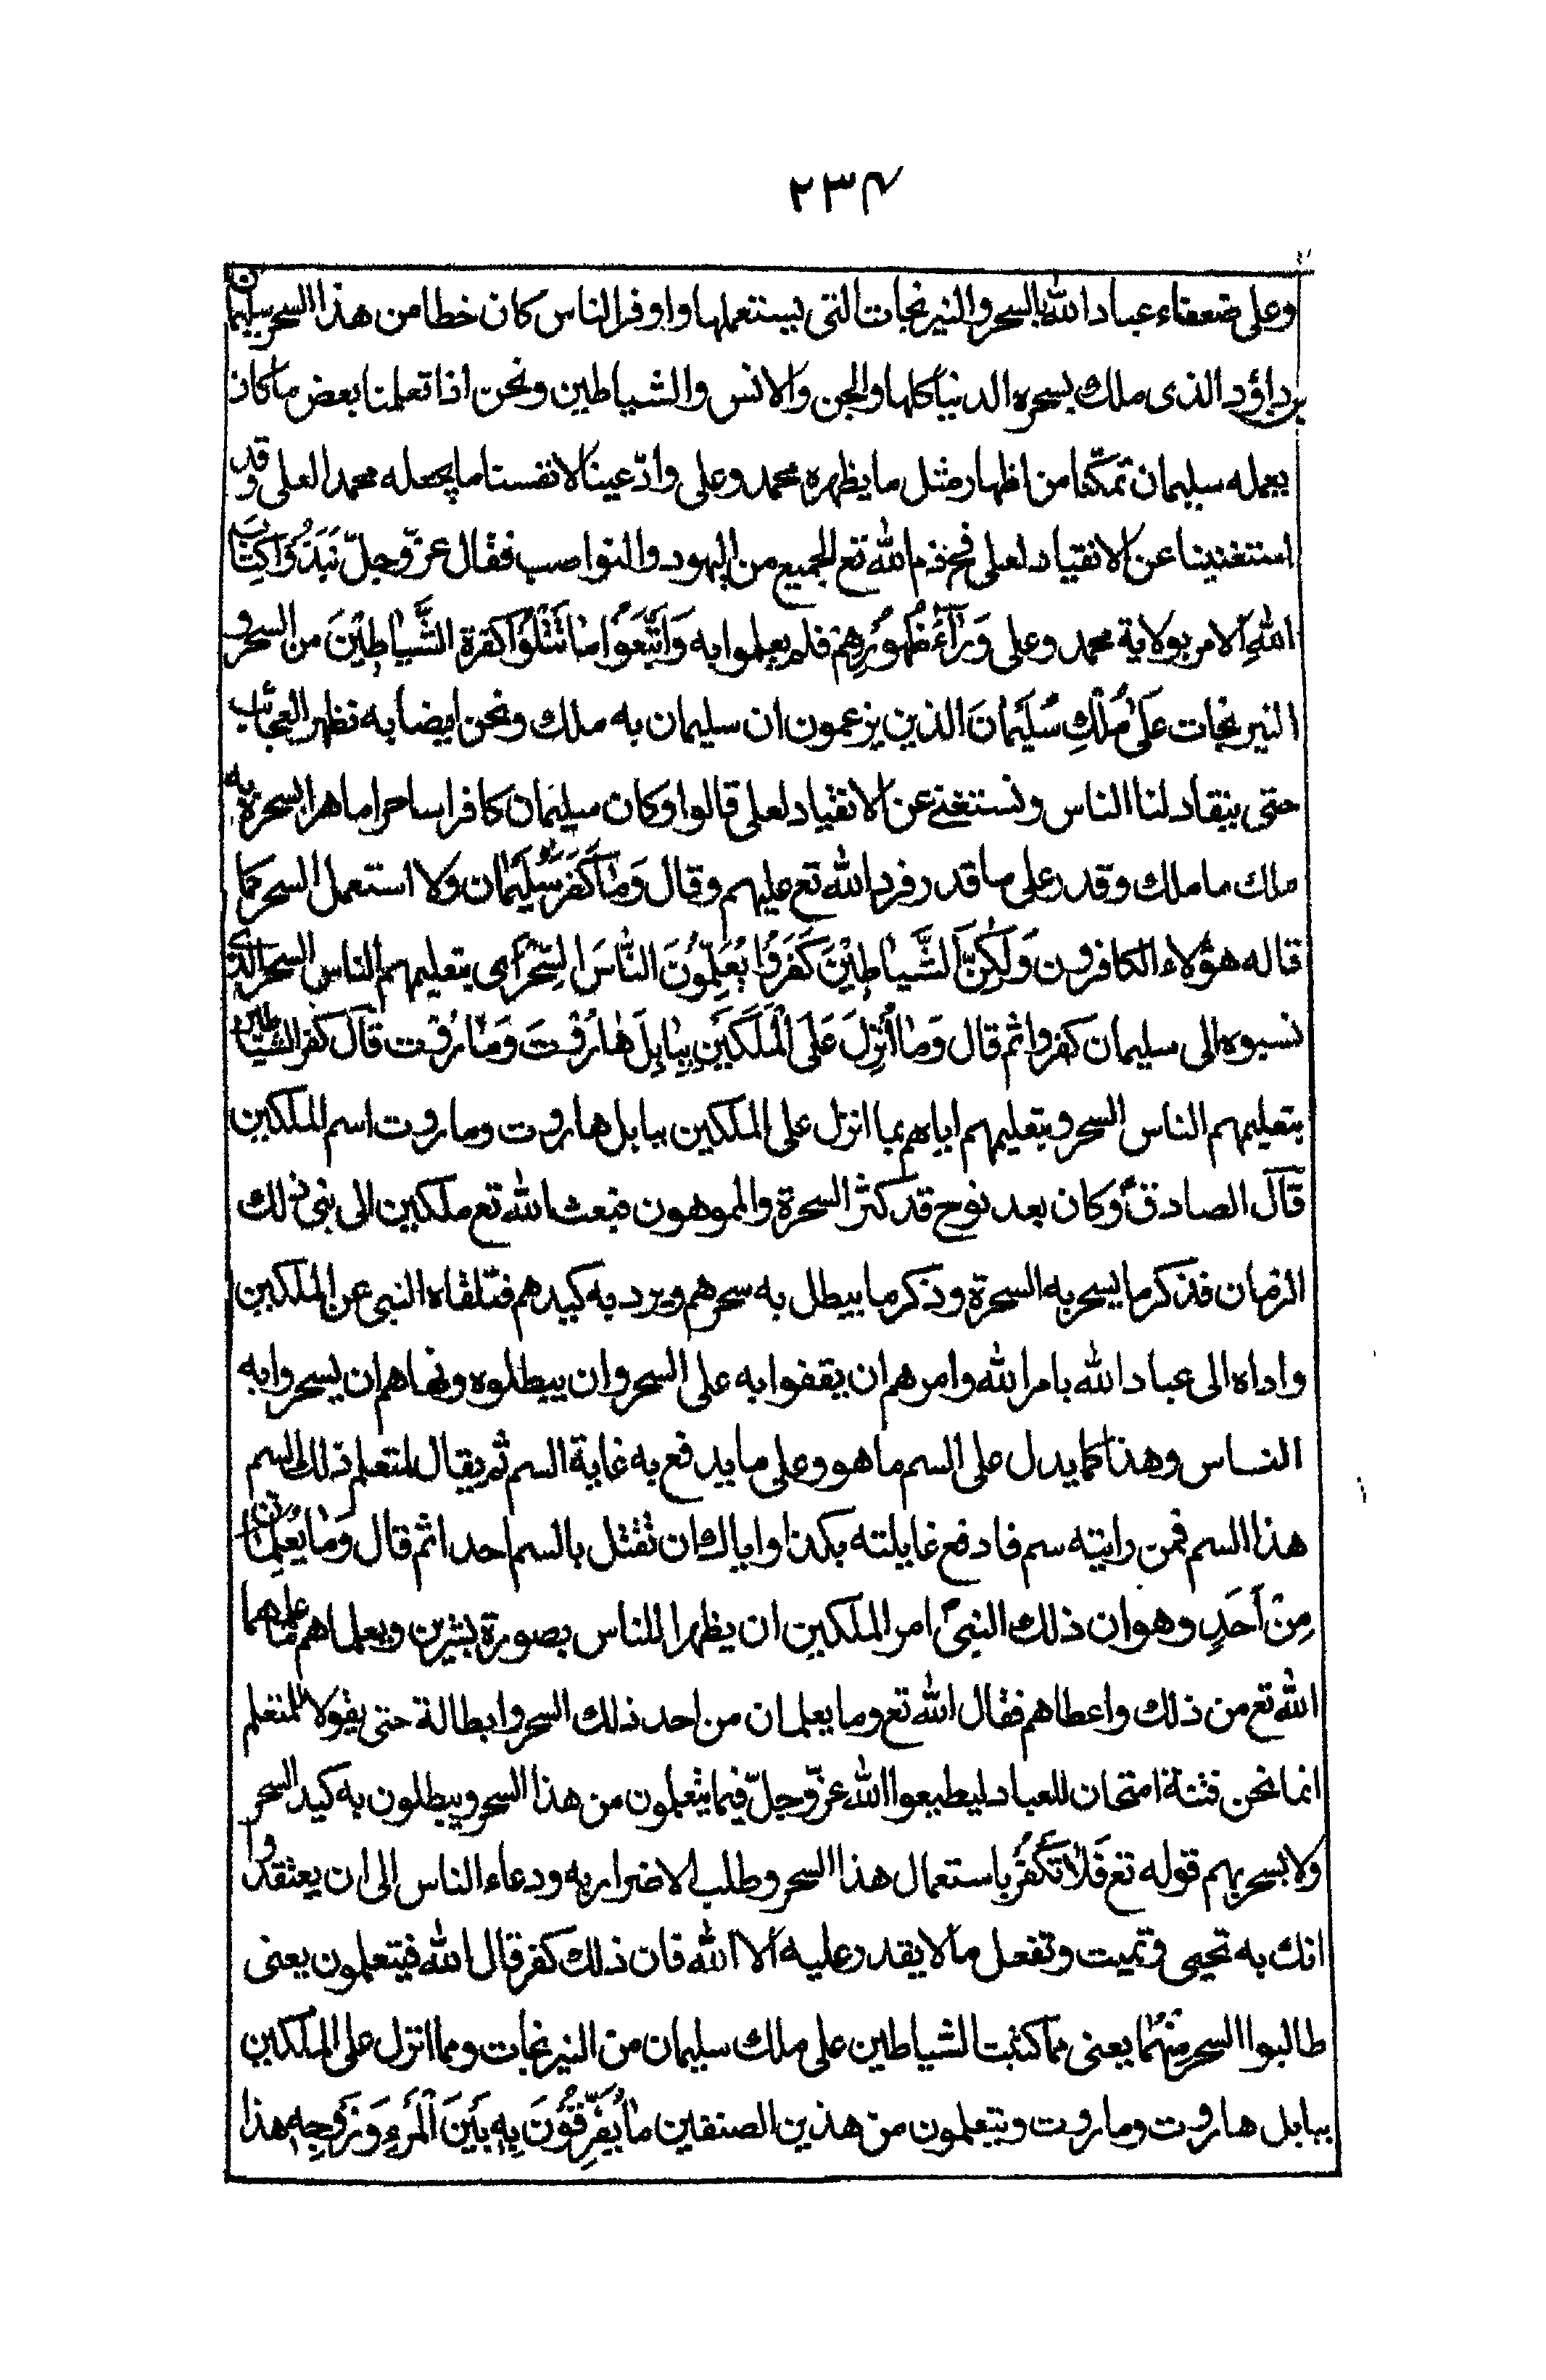 ۲۳۴
وعلى ضعفاء عباد الله بالسحر والنيرنجات التى يستعملها واوفر الناس كان خطا من هذا السحر سليمان
بن داؤد الذى ملك بسحره الدنيا كلها والجن والانس والشياطين ونحن اذا تعلمنا بعض ما كان
يعمله سليمان تمكّنا من اظهار مثل ما يظهره محمد وعلى وادّعينا لانفسنا ما يجعله محمد العلى وقد
استغنينا عن الانقياد لعلى فحٓ ذم الله تع الجميع من اليهود والنواصب فقال عزّ وجلّ نَبَذُوْا كِتَابَ
اللهِ الامر بولاية محمد وعلى وَرَآءَ ظُهُوْرِهِمْ فلم يعملوا به وَاتَّبَعُوْا مَا تَتْلُوْا كفرة الشَّيَاطِيْنَ من السحر و
النيرنجات عَلٰى مُلْكِ سُلَيْمَانَ الذين يزعمون ان سليمان به ملك ونحن ايضا به نظهر العجائب
حتى ينقاد لنا الناس ونستغنى عن الانقياد لعلى قالوا وكان سليمان كافرا ساحرا ماهرا بسحره به
ملك ما ملك وقدر على ما قدر فرد الله تع عليهم وقال وَمَا كَفَرَ سُلَيْمَان ولا استعمل السحر كما
قاله هؤلاء الكافرون وَلٰكِنَّ الشَّيَاطِيْنَ كَفَرُوْا يُعَلِّمُوْنَ النَّاسَ السِّحْرَ اى بتعليمهم الناس السحر الذى
نسبوه الى سليمان كفروا ثم قال وَمَا اُنْزِلَ عَلَى الْمَلَكَيْنِ بِبَابِلَ هَارُوْتَ وَمَارُوْت قال كفر الشياطين
بتعليمهم الناس السحر وبتعليمهم اياهم بما انزل على الملكين ببابل هاروت وماروت اسم الملكين
قال الصادقؑ وكان بعد نوح قد كثر السحرة والمموهون فبعث الله تع ملكين الى نبى ذلك
الزمان فذكر ما يسحر به السحرة وذكر ما يبطل به سحرهم ويرد به كيدهم فتلقاه النبى عن الملكين
واداه الى عباد الله بامر الله وامرهم ان يقفوا به على السحر وان يبطلوه ونهاهم ان يسحروا به
الناس وهذا كما يدل على السم ما هو وعلى ما يدفع به غاية السم ثم يقال لمتعلم ذلك السم
هذا السم فمن رايته سم فادفع غايلته بكذا واياك ان تقتل بالسم احدا ثم قال وَمَا يُعَلِّمَانِ
مِنْ اَحَدٍ وهو ان ذلك النبىؑ امر الملكين ان يظهرا للناس بصورة بشرين ويعلماهم ما علمهما
الله تع من ذلك واعطاهم فقال الله تع وما يعلمان من احد ذلك السحر وابطالة حتى يقولا للمتعلم
انما نحن فتنة امتحان للعباد ليطيعوا الله عزّ وجلّ فيما يتعلمون من هذا السحر ويبطلون به كيد السحر
ولا يسحر بهم قوله تع فَلَا تَكْفُرْ باستعمال هذا السحر وطلب الاضرار به ودعاء الناس الى ان يعتقدوا
انك به تحيى وتميت وتفعل ما لا يقدر عليه الا الله فان ذلك كفر قال الله فيتعلمون يعنى
طالبوا السحر مِنْهُمَا يعنى مما كتبت الشياطين على ملك سليمان من النيرنجات ومما انزل على الملكين
ببابل هاروت وماروت ويتعلمون من هذين الصنفين مَا يُفَرِّقُوْنَ بِهٖ بَيْنَ الْمَرْءِ وَزَوْجِهٖ هذا